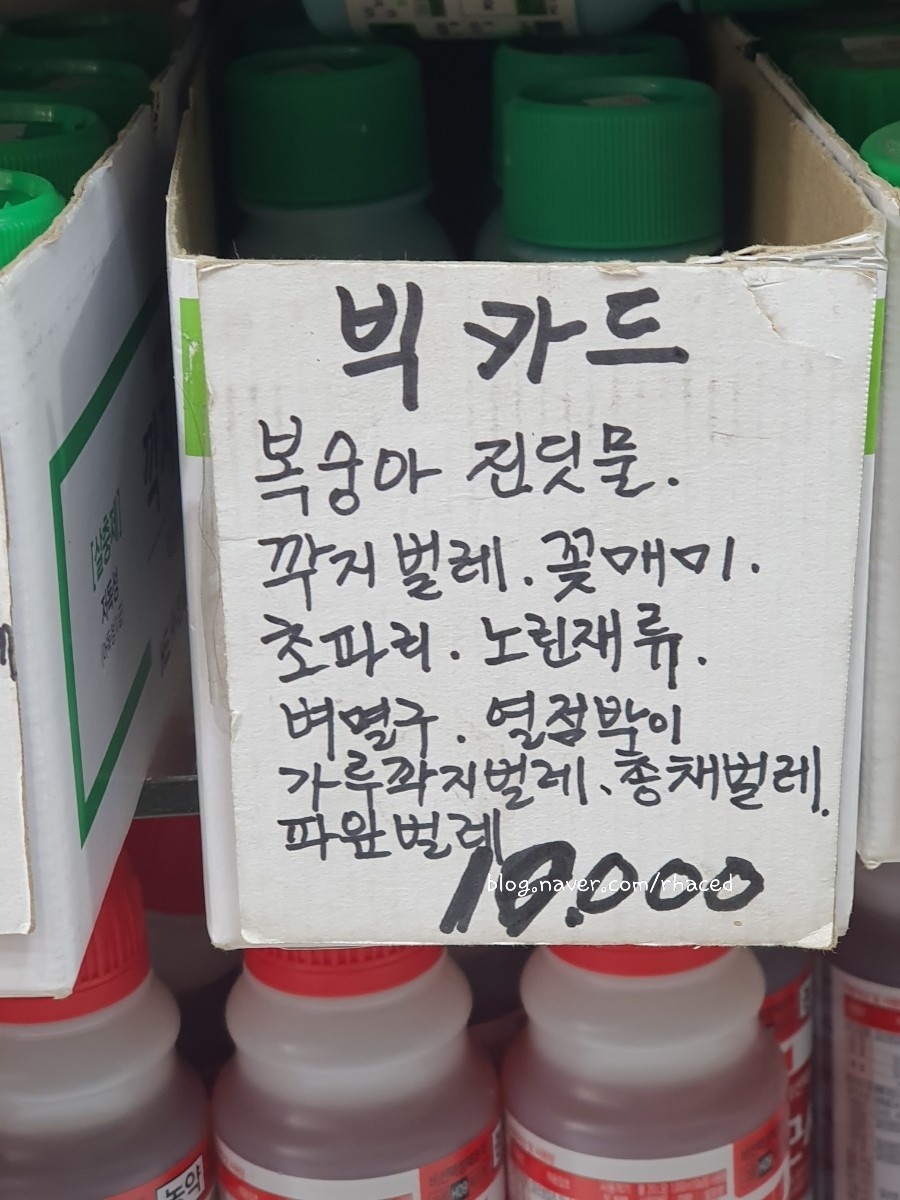 빅카드
복숭아 진딧물.
깍지벌레.꽃매미.
초파리.노린재류.
벼멸구.열점박이
가루깍지벌레.총채벌레.
파밤벌레
blog.naver.com/rhaced
[살충제]
저독성
농약